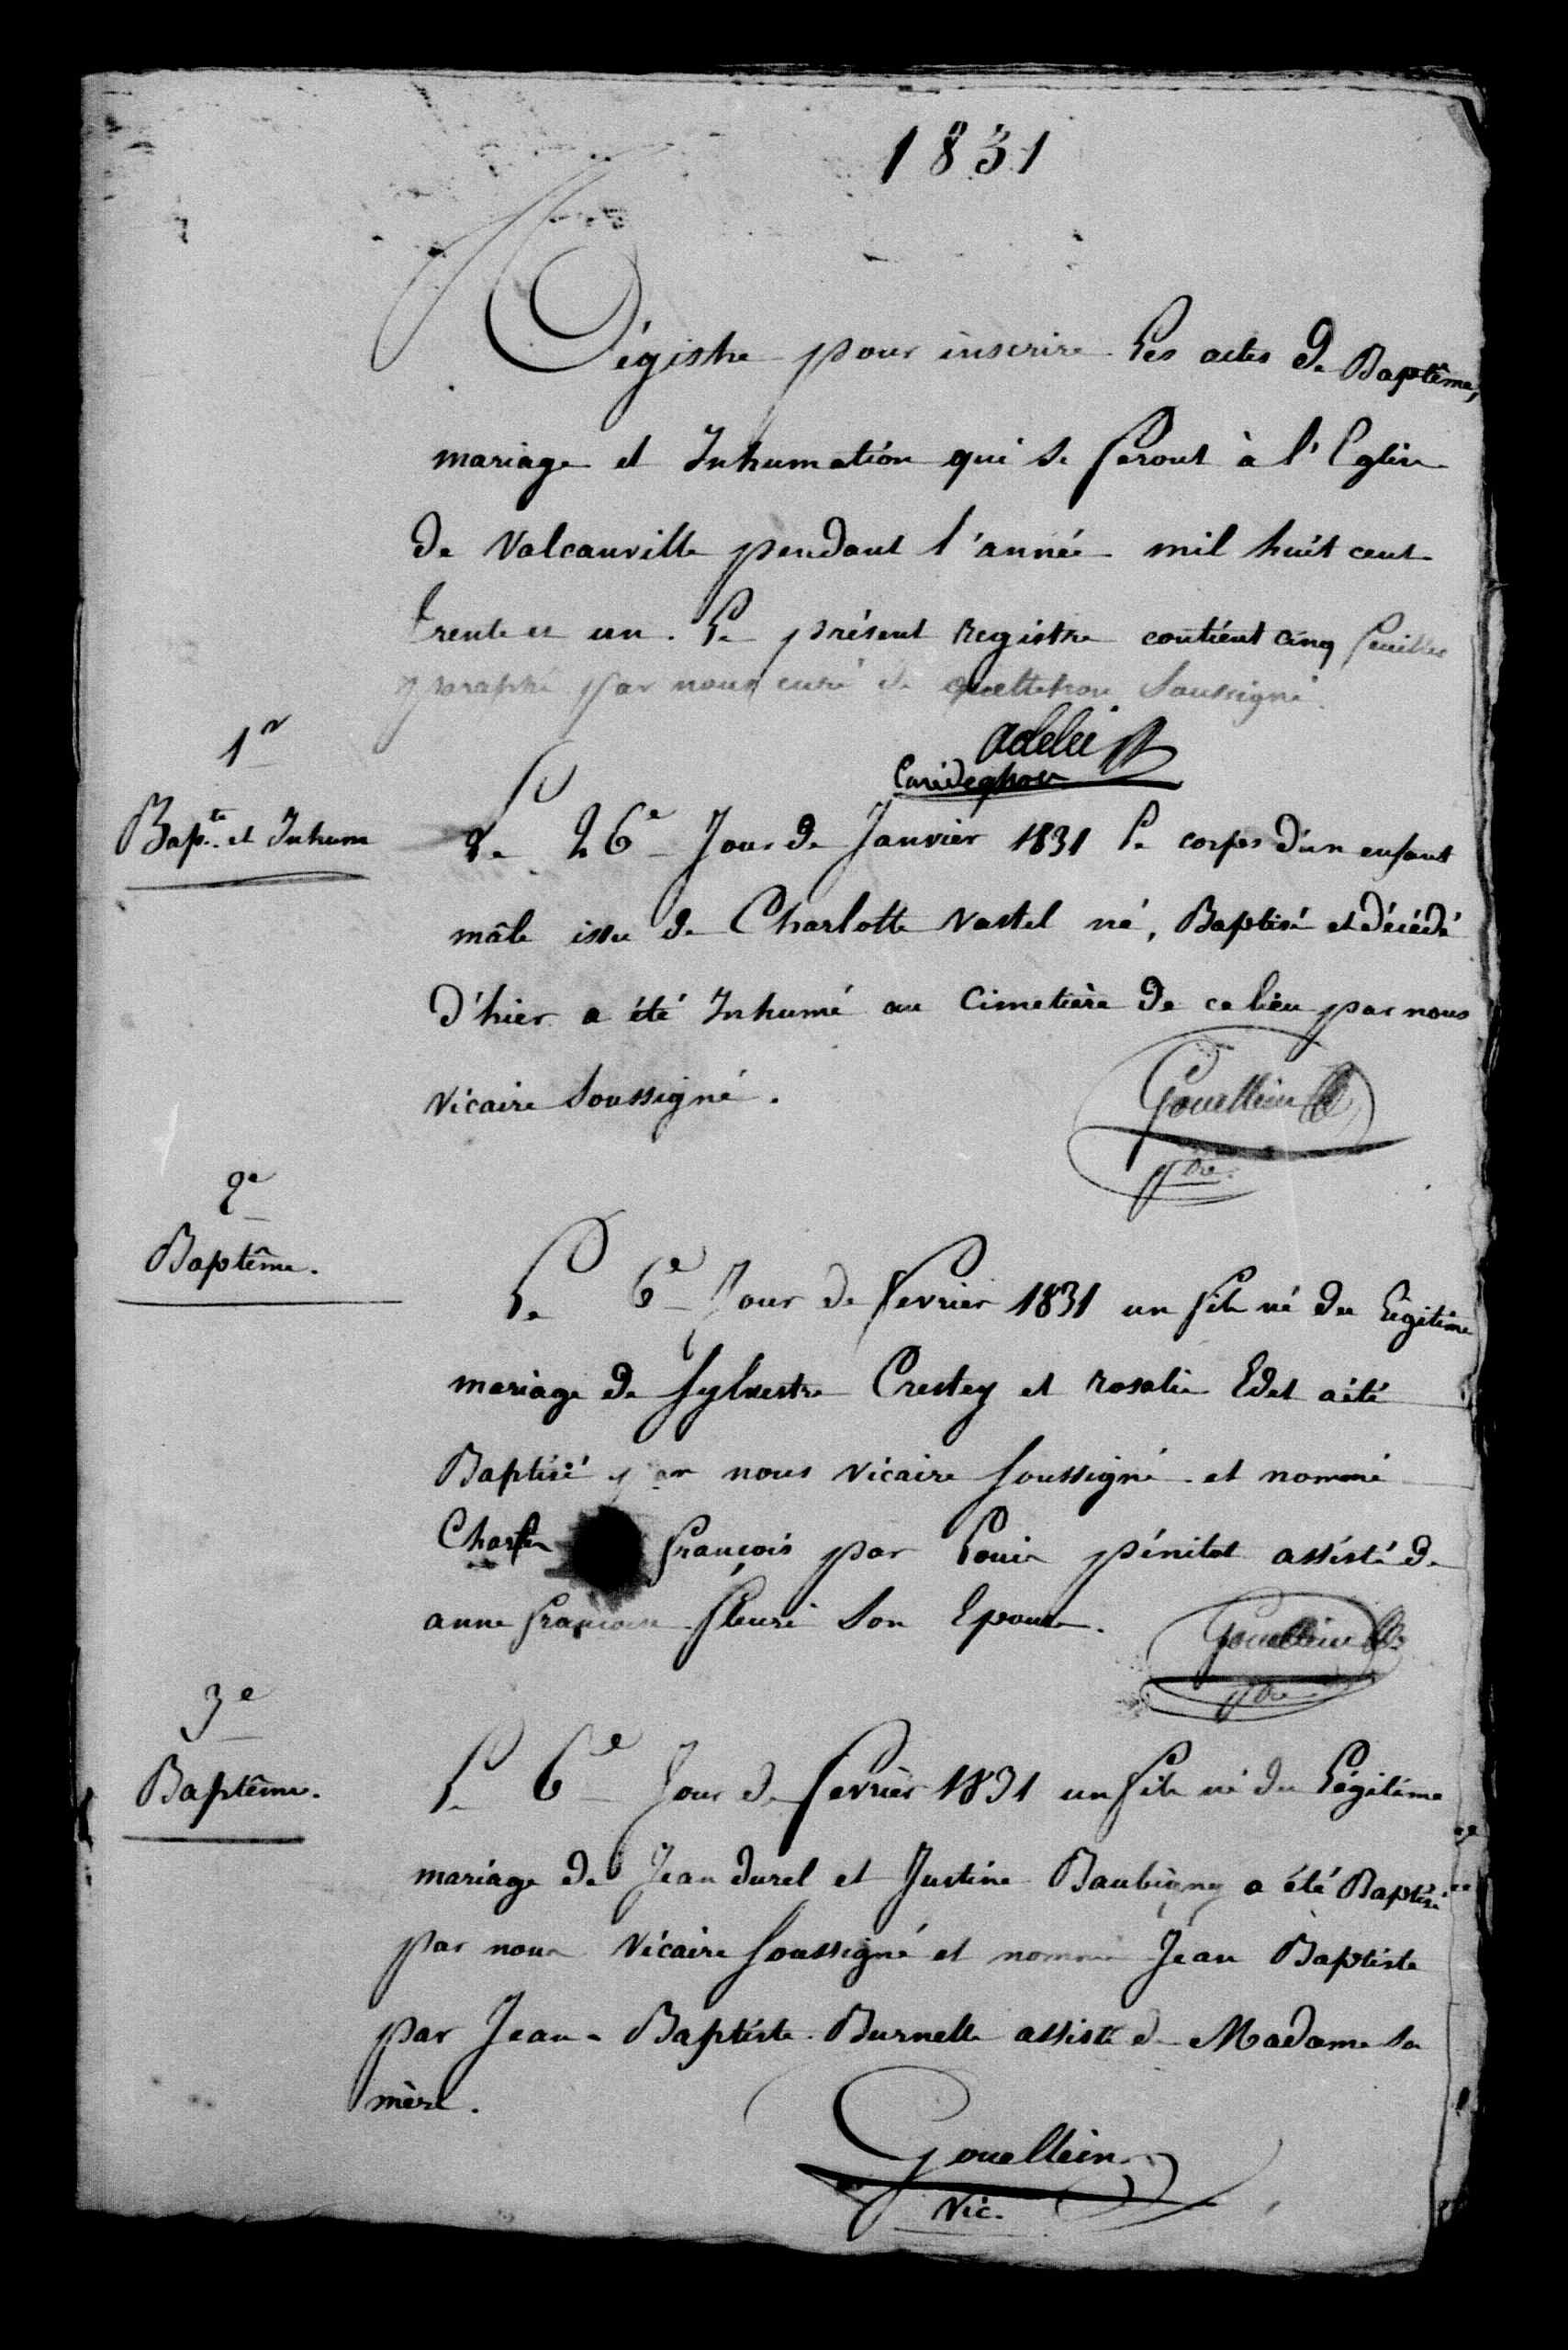 1831
Régistre pour inscrire les actes de Baptême,
mariage et Inhumation qui se feront à l'Eglise
de Valcanville pendant l'année mil huit cent
trente et un. Le présent registre contient cinq feuilles
paraphé par nous curé de quettehou soussigné.
1er
Bapte et Inhum
Le 26e Jour de Janvier 1831 le corps d'un enfant
mâle issu de Charlotte Vastel né, Baptisé et décédé
d'hier a été Inhumé au Cimetière de ce lieu par nous
Vicaire soussigné.
Gouellein
ptre.
2e
Baptême.
Le 6e Jour de fevrier 1831 un fils né du Légitime
mariage de Sylvestre Crestey et rosalie Edet a été
Baptisé par nous Vicaire soussigné et nommé
Charles françois par Louis pénitot assisté de
anne françoise fleuri son Epouse.
Gouellein
ptre
3e
Baptême.
Le 6e Jour de fevrier 1831 un fils né du Légitime
mariage de Jean durel et Justine Baubigny a été Baptisé
par nous Vicaire soussigné et nommé Jean Baptiste
par Jean-Baptiste Burnelle assisté de Madame sa
mère.
Gouellein
Vic.